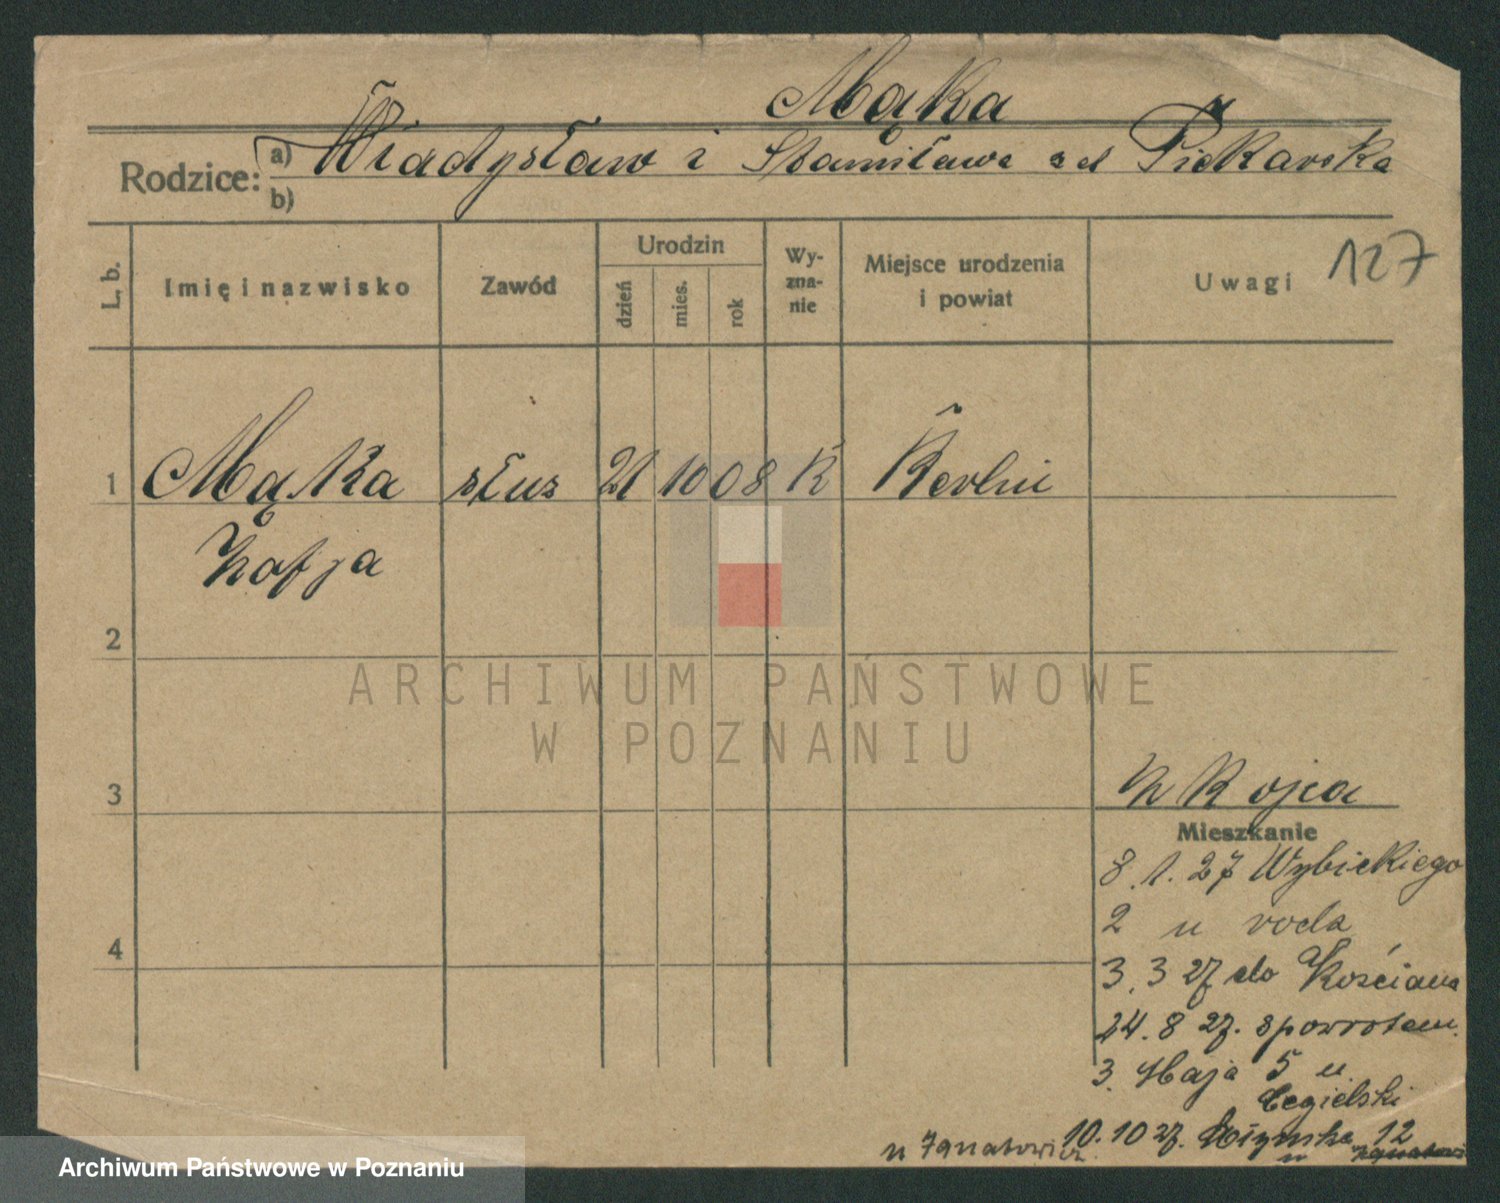 Mąka
Rodzice: a) Władysław i Stanisława zd Piekarska
b)
L. b. Imię i nazwisko Zawód Urodzin dzień mies. rok Wy-zna-nie Miejsce urodzenia i powiat Uwagi 127
1 Mąka służ 21 10 08 K Berlin
Zofja
2
ARCHIWUM PAŃSTWOWE
W POZNANIU
3
Mieszkanie
8.1.27 Wybickiego
2 u
4
3.3 27 do Kościana
24.8 27. spowrotem.
3 Maja 5 u
Cegielski
10.10 27. 12
u Ignatowicz
Archiwum Państwowe w Poznaniu